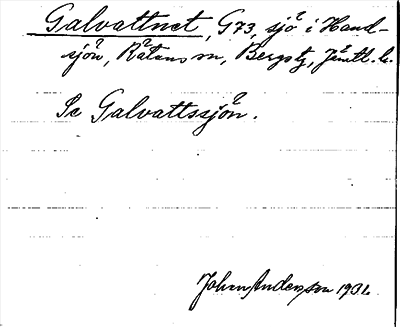 Galvattnet, G73, sjö i Hand-
sjön, Rätans sn, Bergstg, Jämtl. l.
Se Galvattssjön.
Johan Anderson 1931.